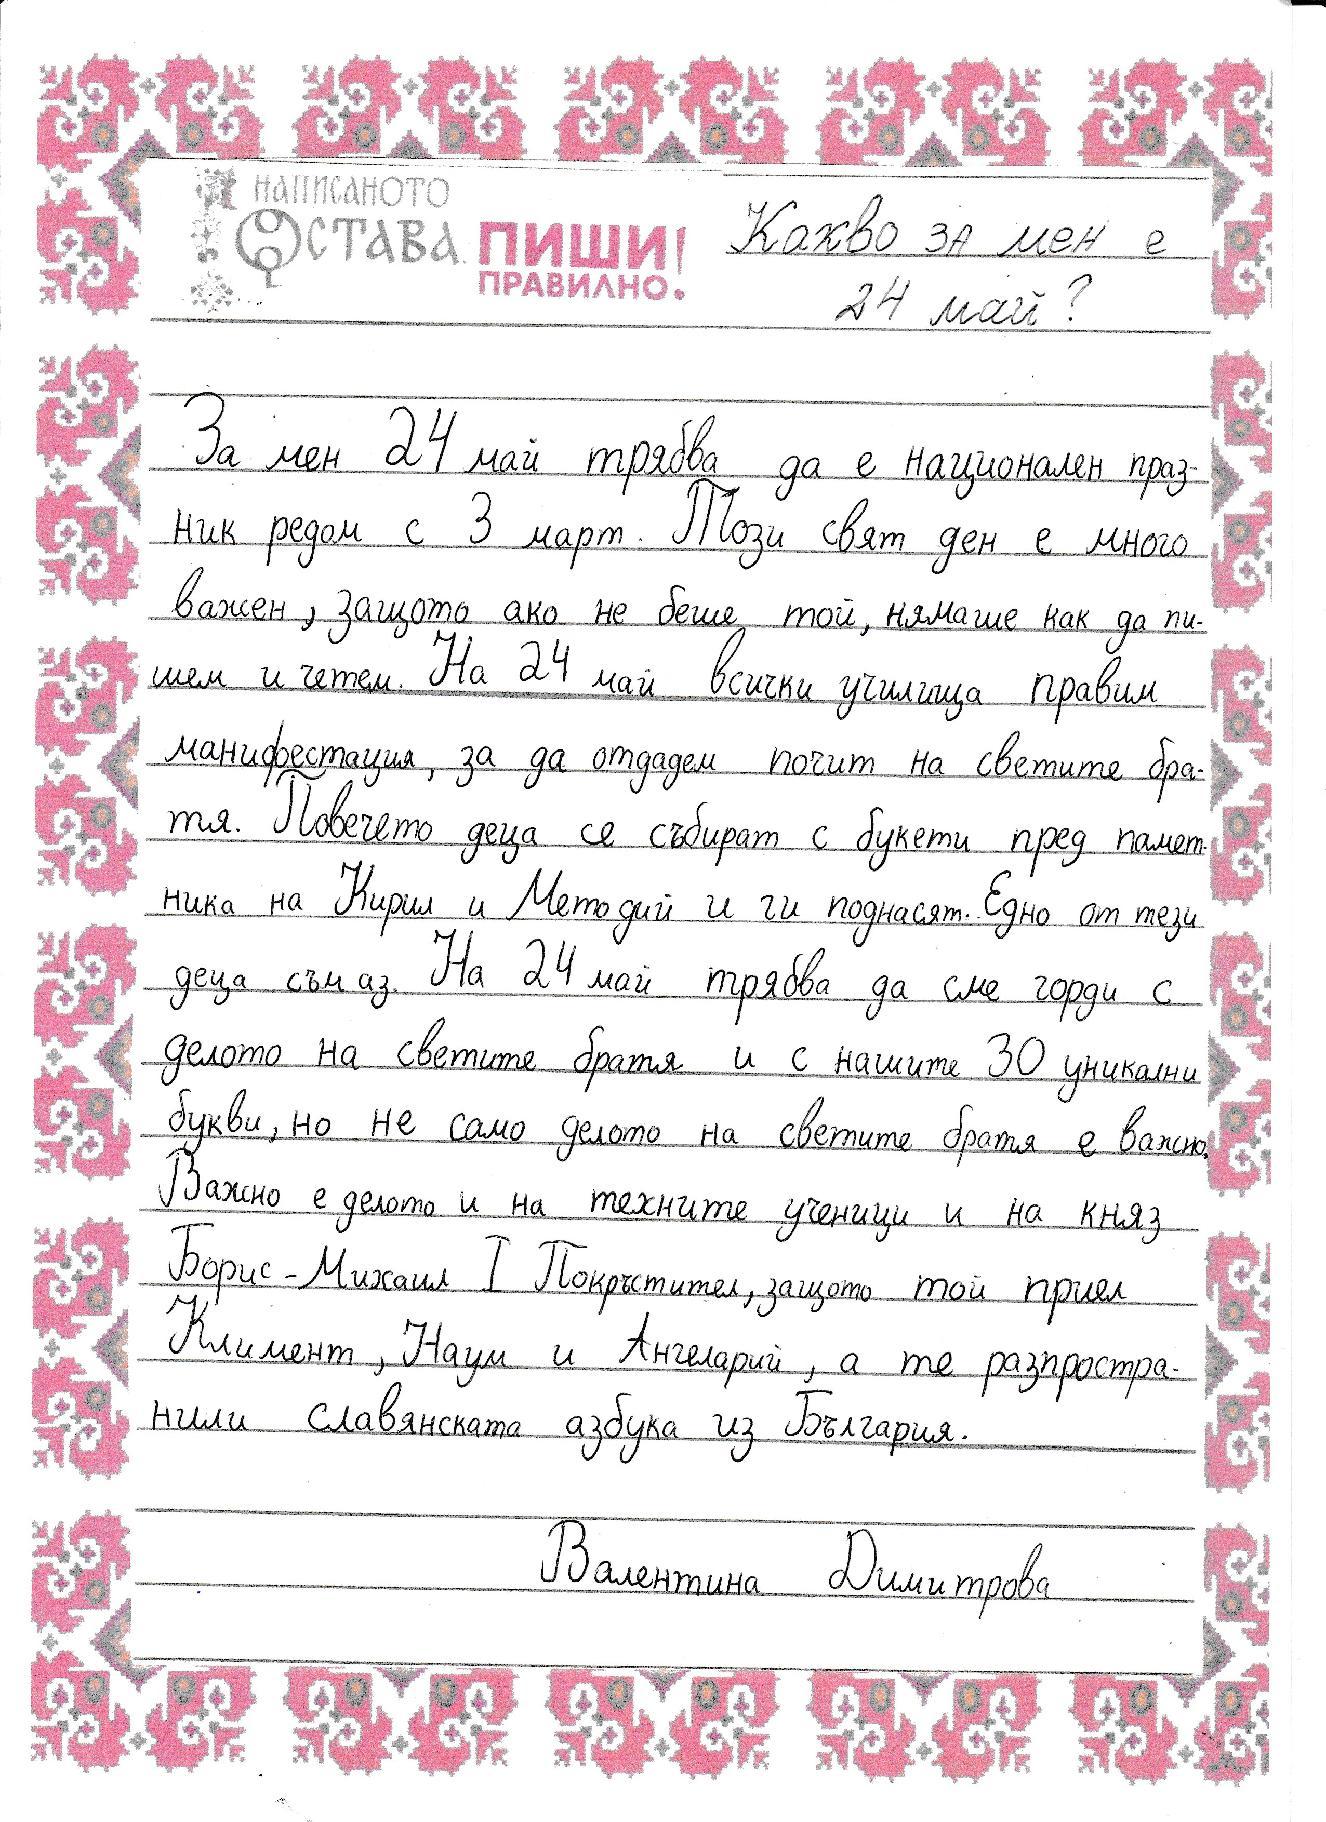 НАПИСАНОТО
ОСТАВА. ПИШИ
ПРАВИЛНО!
Какво за мен е
24 май?
За мен 24 май трябва да е национален праз-
ник редом с 3 март. Този свят ден е много
важен, защото ако не беше той, нямаше как да пи-
шем и четем. На 24 май всички училища правим
манифестация, за да отдадем почит на светите бра-
тя. Повечето деца се събират с букети пред памет-
ника на Кирил и Методий и ги поднасят. Едно от тези
деца съм аз. На 24 май трябва да сме горди с
делото на светите братя и с нашите 30 уникални
букви, но не само делото на светите братя е важно.
Важно е делото и на техните ученици и на княз
Борис-Михаил I Покръстител, защото той приел
Климент, Наум и Ангеларий, а те разпростра-
нили славянската азбука из България.
Валентина Димитрова